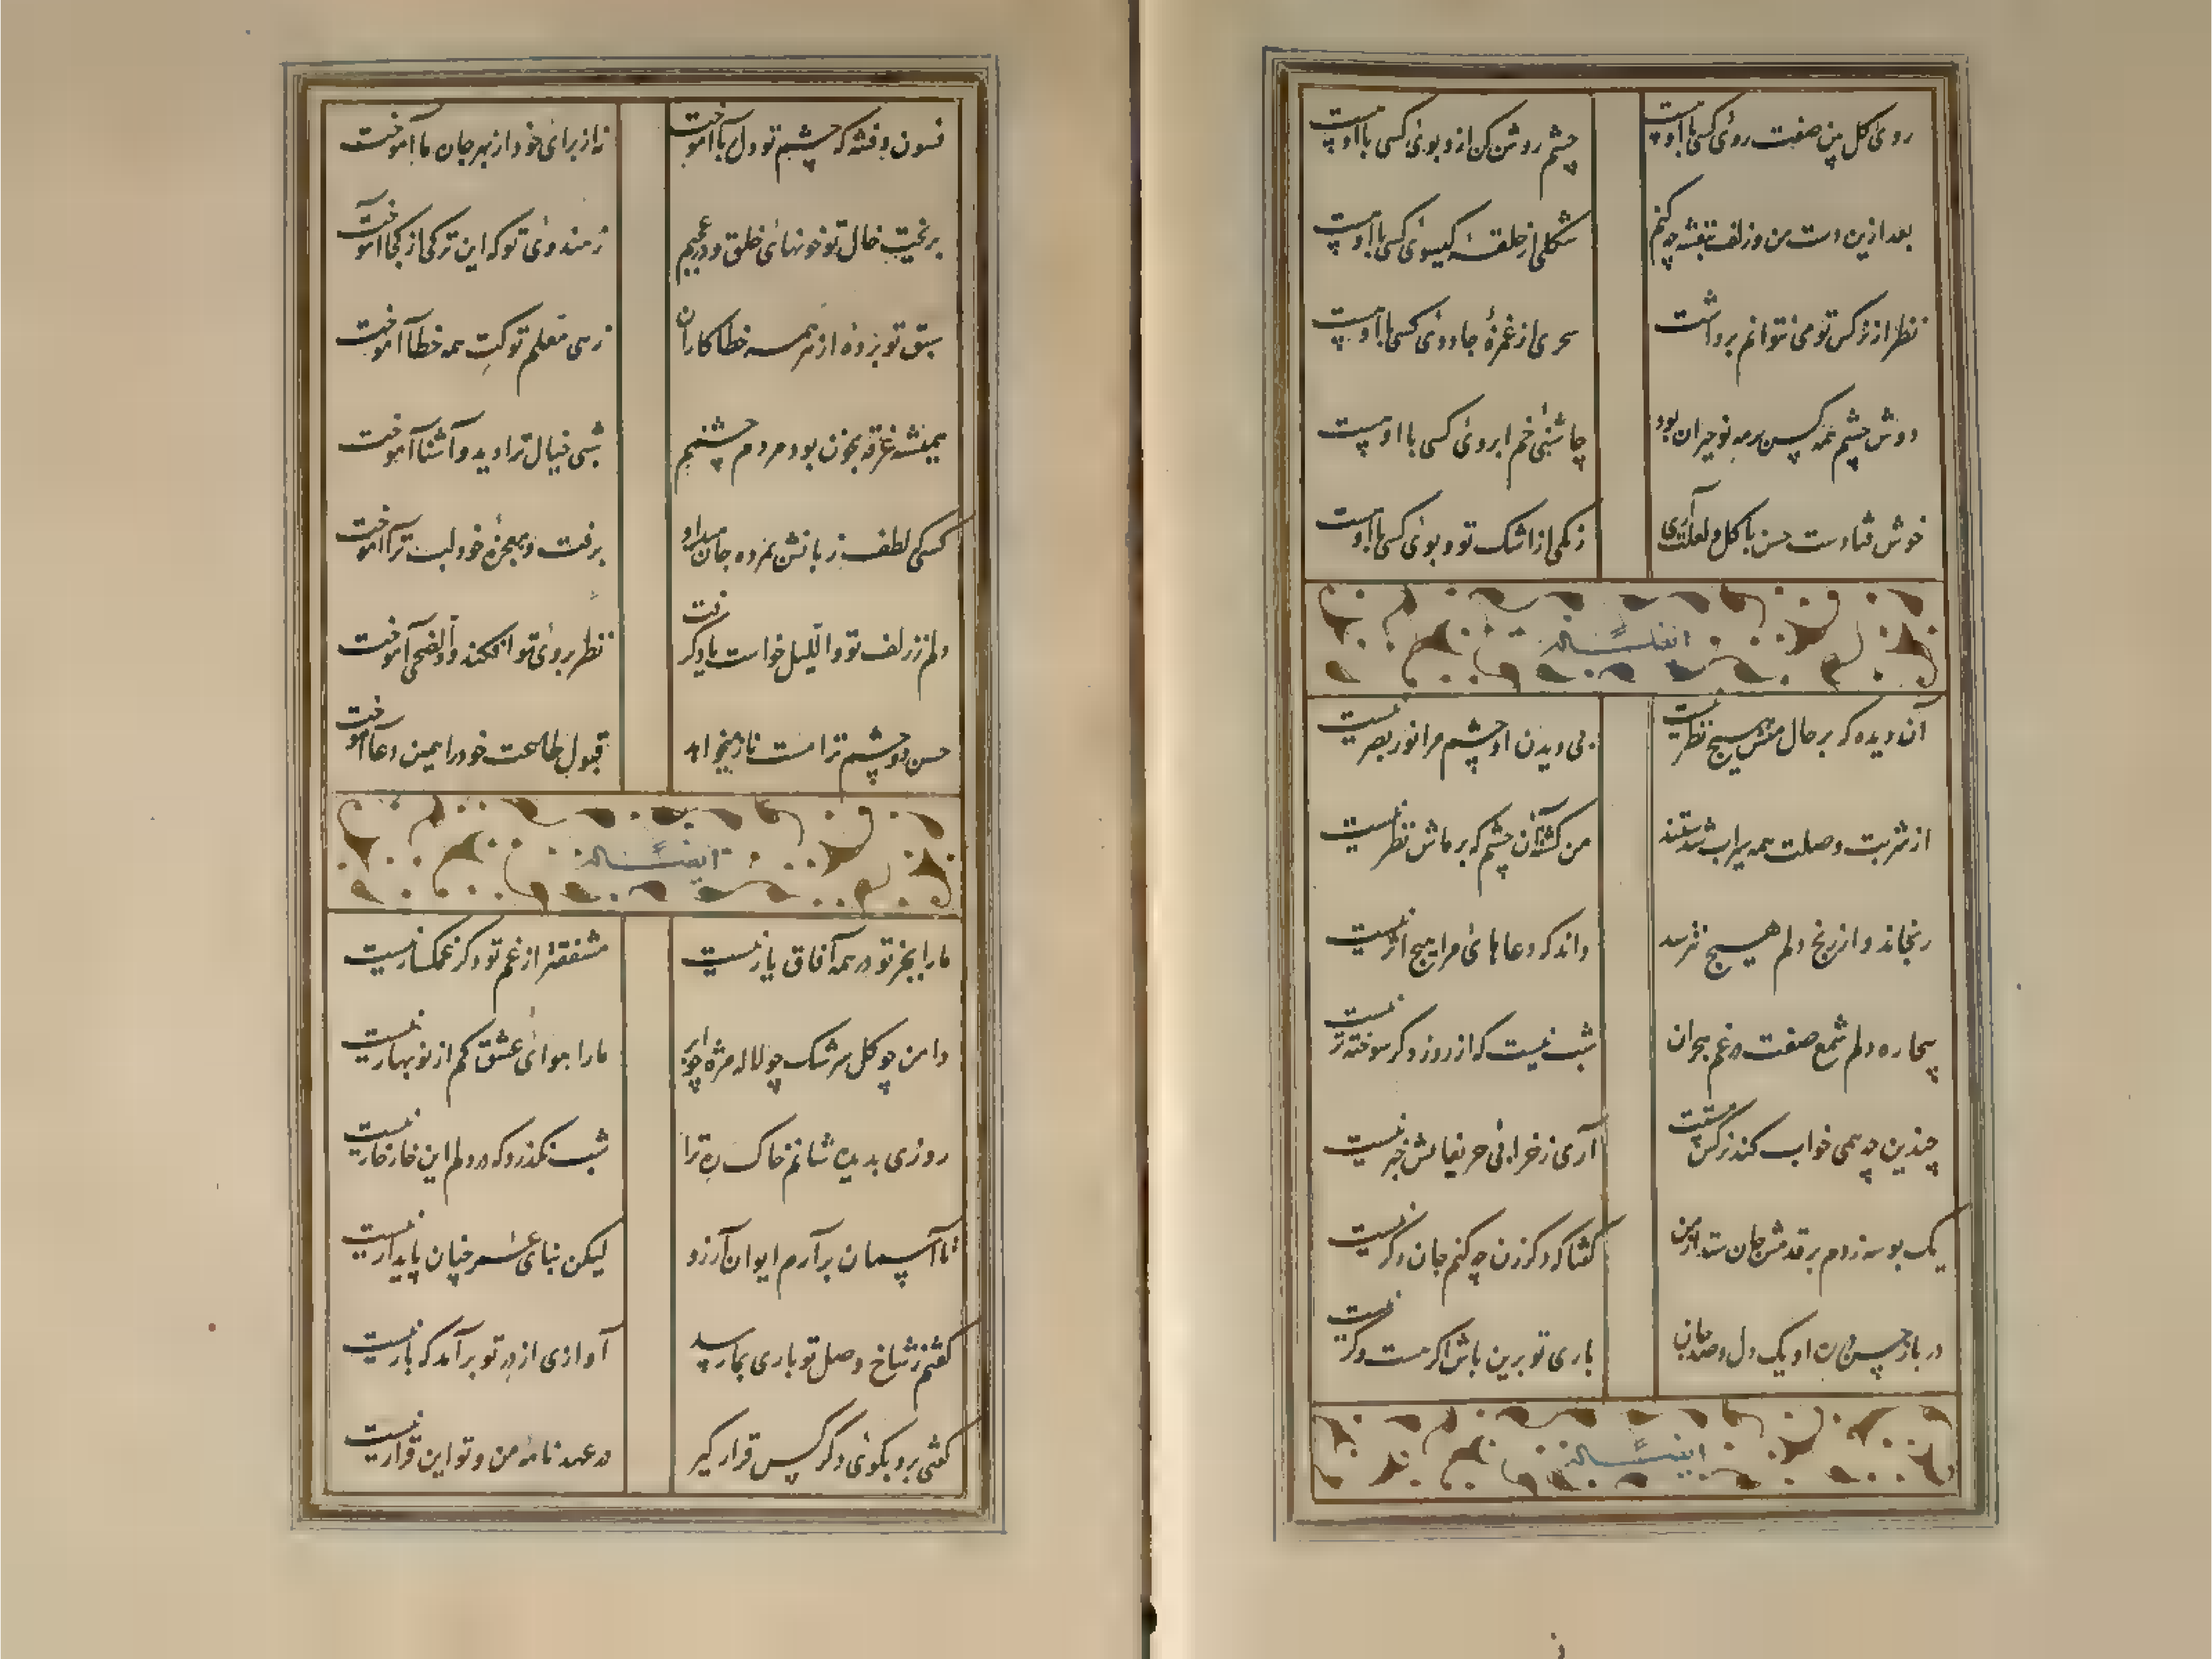 روی گل بین صفت روی کسی با او هست
چشم روشن کن ازو بوی کسی با او هست
بعد ازین دست من و زلف بنفشه چه کنم
شکلی از حلقهٔ گیسوی کسی با او هست
نظر از نرگس تو می نتوانم برداشت
سحری از غمزهٔ جادوی کسی با او هست
دوش چشم همه کس بر مه نو حیران بود
چاشنی خم ابروی کسی با او هست
خوش فتادست حسن با گل و لعلت آری
رنگی از اشک تو و بوی کسی با او هست
ایضاً له
آن دیده که بر حال منش هیچ نظر نیست
بی دیدن او چشم مرا نور بصر نیست
از شربت وصلت همه سیراب شدستند
من کشتهٔ آن چشم که بر ماش نظر نیست
رنجاند و از رنج دلم هیچ نترسد
داند که دعاهای مرا هیچ اثر نیست
بیچاره دلم شمع صفت در غم هجران
شب نیست که از روز دگر سوخته تر نیست
چندین چه همی خواب کند نرگس مستت
آری ز خرابی حریفانش خبر نیست
یک بوسه زدم بر قدمش جان ستد از من
گفتا که دگر زن چه کنم جان دگر نیست
در باز حسن در ره او یک دل و صد جان
باری تو برین باش اگر هست وگر نیست
ایضاً له
فسون و فتنه که چشم تو دل با آموخت
نه از برای خود از بهر جان ما آموخت
بریخت خال تو خونهای خلق و در عجبم
ز هندوی تو که این ترکی از کجا آموخت
سبق تو برده از همه خطاکاران
زهی معلم تو کت همه خطا آموخت
همیشه غرقه بخون بود مردم چشمم
شبی خیال ترا دید و آشنا آموخت
کسی لطف زبانش بمرده جان میداد
برفت و معجزهٔ خود لبت ترا آموخت
دلم ز زلف تو واللیل خواست یاد گرفت
نظر بروی تو افکند و والضحی آموخت
حسن دو چشم ترا مست ناز میخواهد
قبول طاعت خود را همین دعا آموخت
ایضاً له
ما را بجز تو در همه آفاق یار نیست
مشفقتر از غم تو دگر غمگسار نیست
دامن چو گل سرشک چو لاله مژه چو ابر
ما را هوای عشق کم از نوبهار نیست
روزی بدیده شانم خاک ره ترا
شب نگذرد که در دلم این خارخار نیست
تا آسمان برآرم ایوان آرزو
لیکن بنای عمر چنان پایدار نیست
گفتم ز شاخ وصل تو باری بما رسد
آوازی از در تو برآمد که بار نیست
گفتی برو بکوی دگر کس قرار گیر
در عهدنامهٔ من و تو این قرار نیست